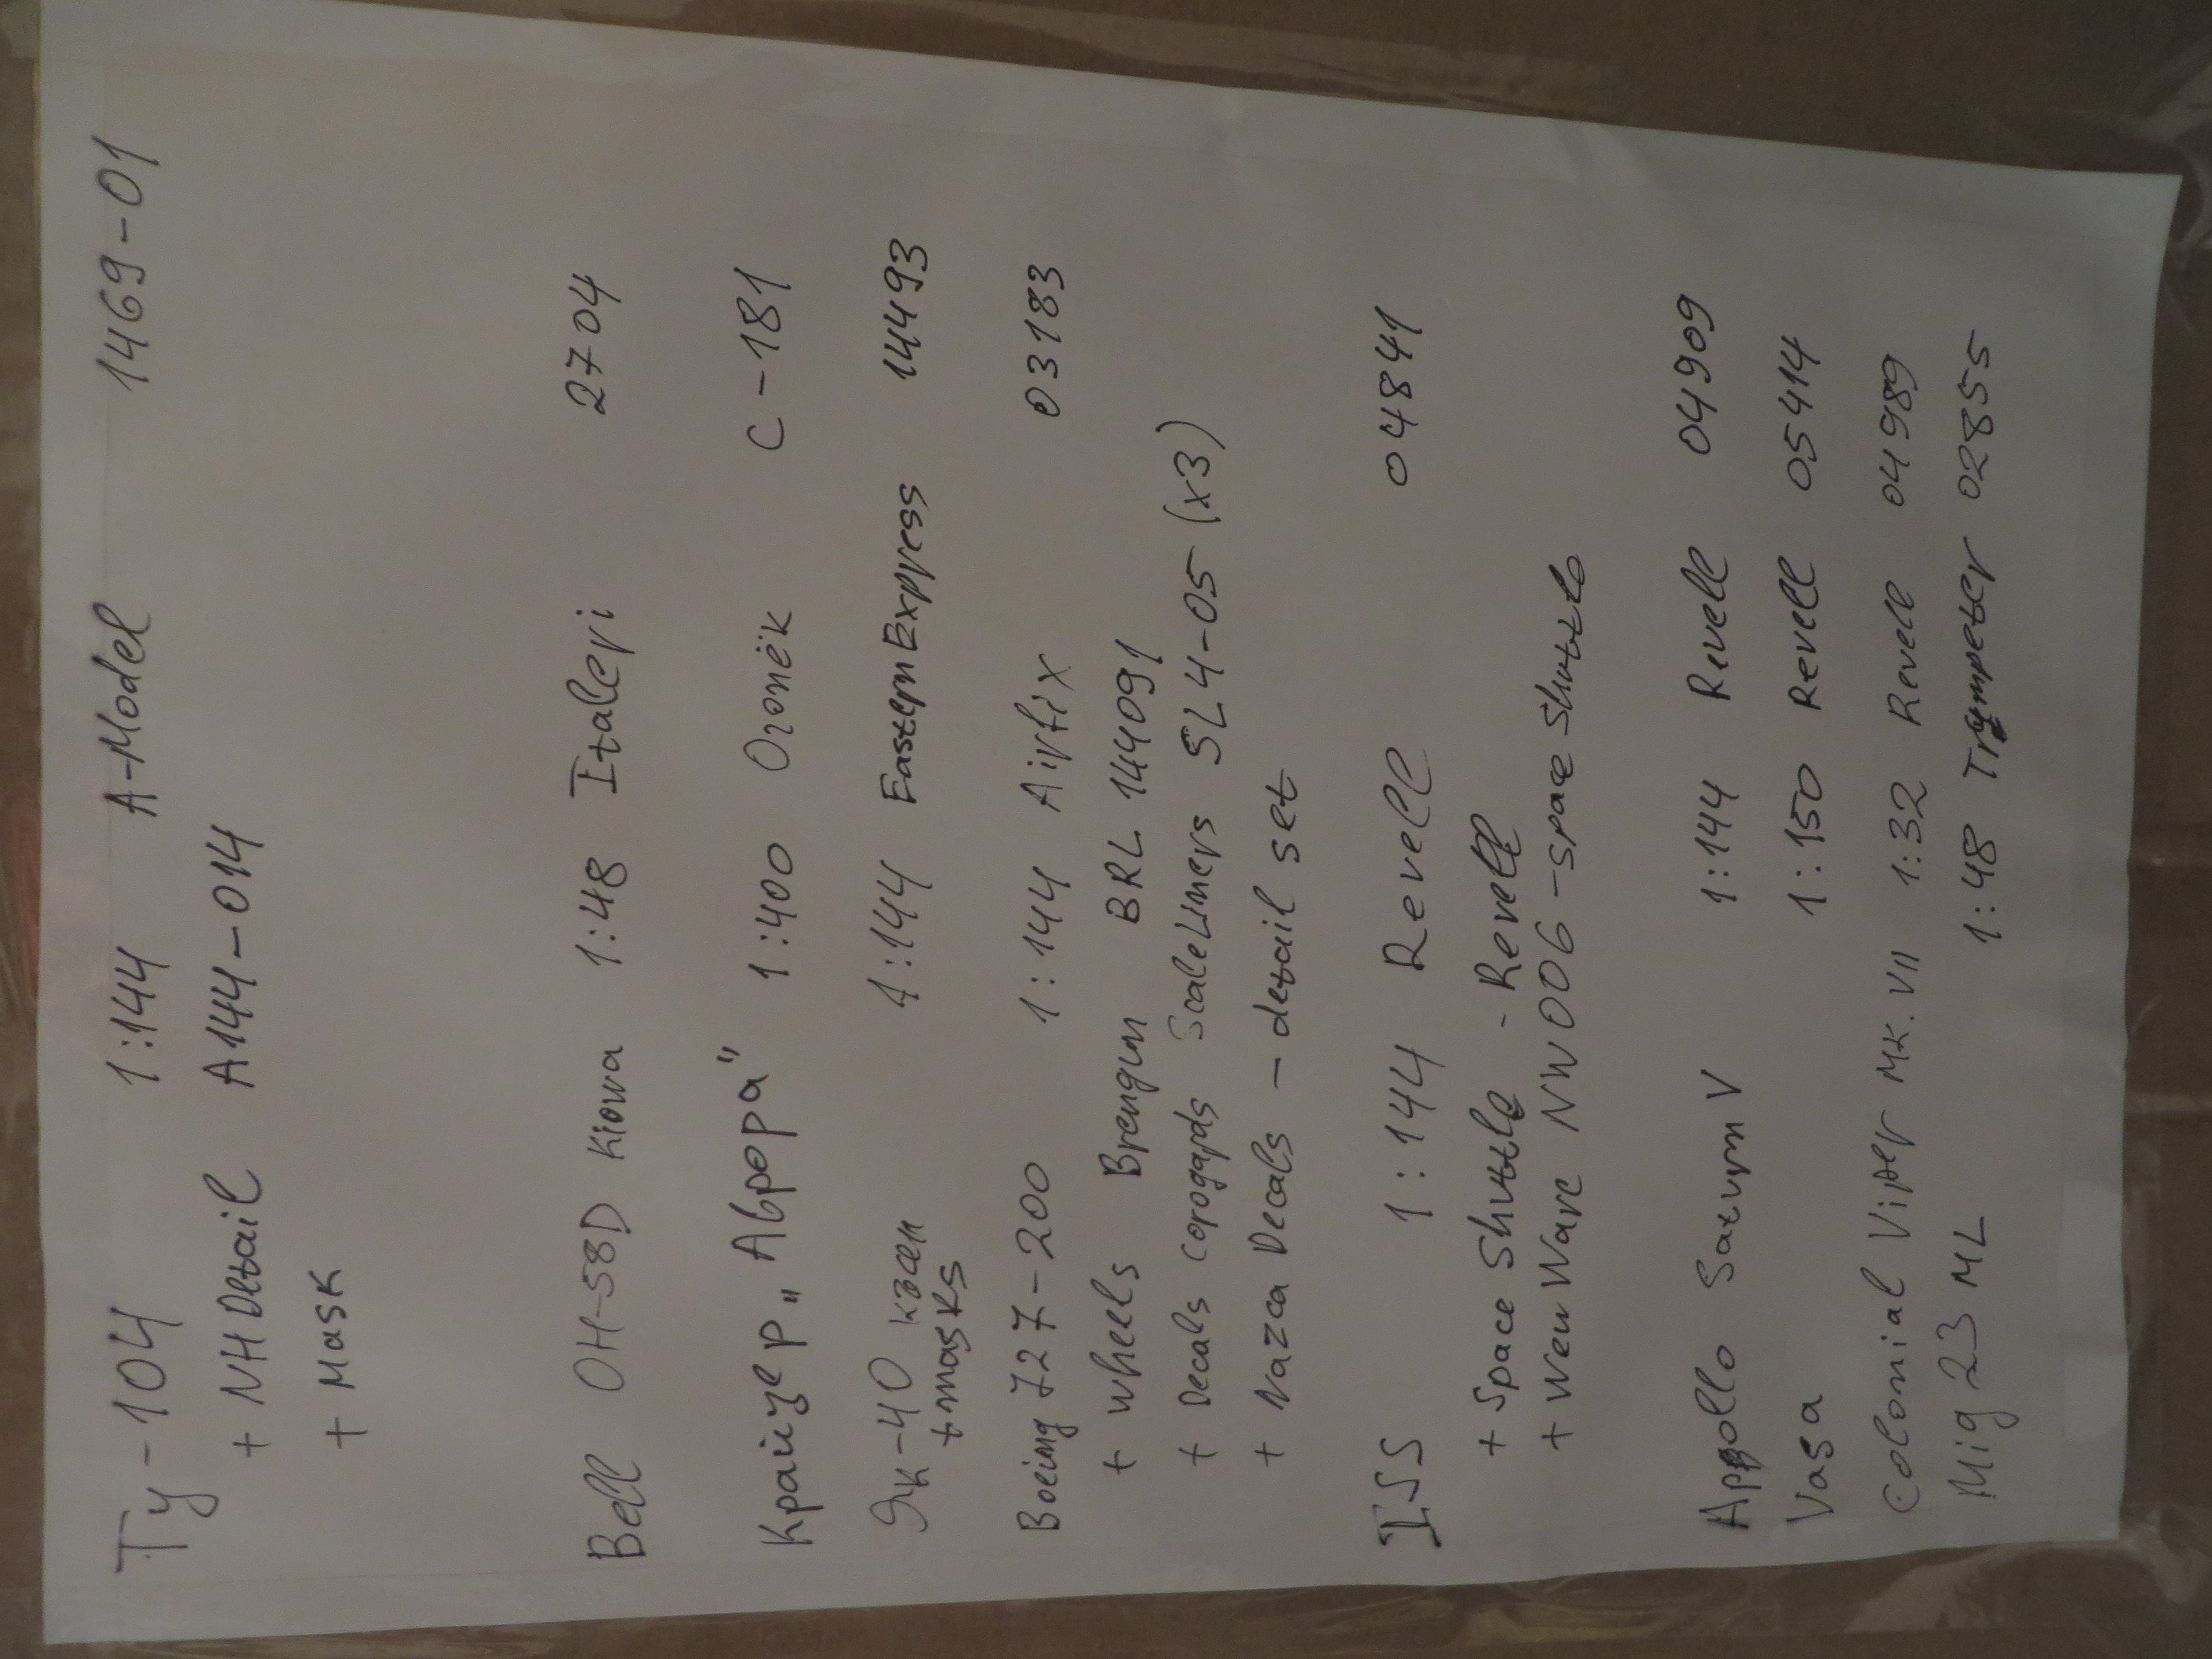 Ту-104 1:144 A-Model 1469-01
+ NH Detail A144-014
+ Mask
Bell OH-58D Kiowa 1:48 Italeri 2704
Крайцер „Аврора" 1:400 Огонёк C-181
Як-40 1:144 EasternExpress 14493
+ masks
Boeing 727-200 1:144 Airfix 03183
+ wheels Brengun BRL 144091
+ Decals corogards Scaleliners SL4-05 (x3)
+ Nazca Decals - detail set
ISS 1:144 Revell 04841
+ Space Shuttle - Revell
+ New Ware NW006 - space shuttle
Appollo Saturn V 1:144 Revell 04909
Vasa 1:150 Revell 05414
Colonial Viper MK.VII 1:32 Revell 04989
Mig 23 ML 1:48 Trumpeter 02855